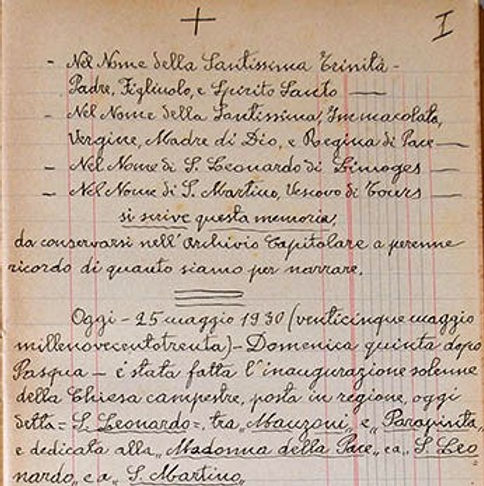 + I
- Nel Nome della Santissima Trinità -
Padre, Figliuolo, e Spirito Santo —
- Nel Nome della Santissima, Immacolata,
Vergine, Madre di Dio, e Regina di Pace —
- Nel Nome di S. Leonardo di Limoges —
- Nel Nome di S. Martino, Vescovo di Tours —
si scrive questa memoria,
da conservarsi nell'Archivio Capitolare a perenne
ricordo di quanto siamo per narrare.
Oggi - 25 maggio 1930 (venticinque maggio
millenovecentotrenta) - Domenica quinta dopo
Pasqua - è stata fatta l'inaugurazione solenne
della Chiesa campestre, posta in regione, oggi
detta = S. Leonardo =, tra „Manzoni„ e „Parapinta„
e dedicata alla „Madonna della Pace„ e a „S. Leo
nardo„ e a „S. Martino„